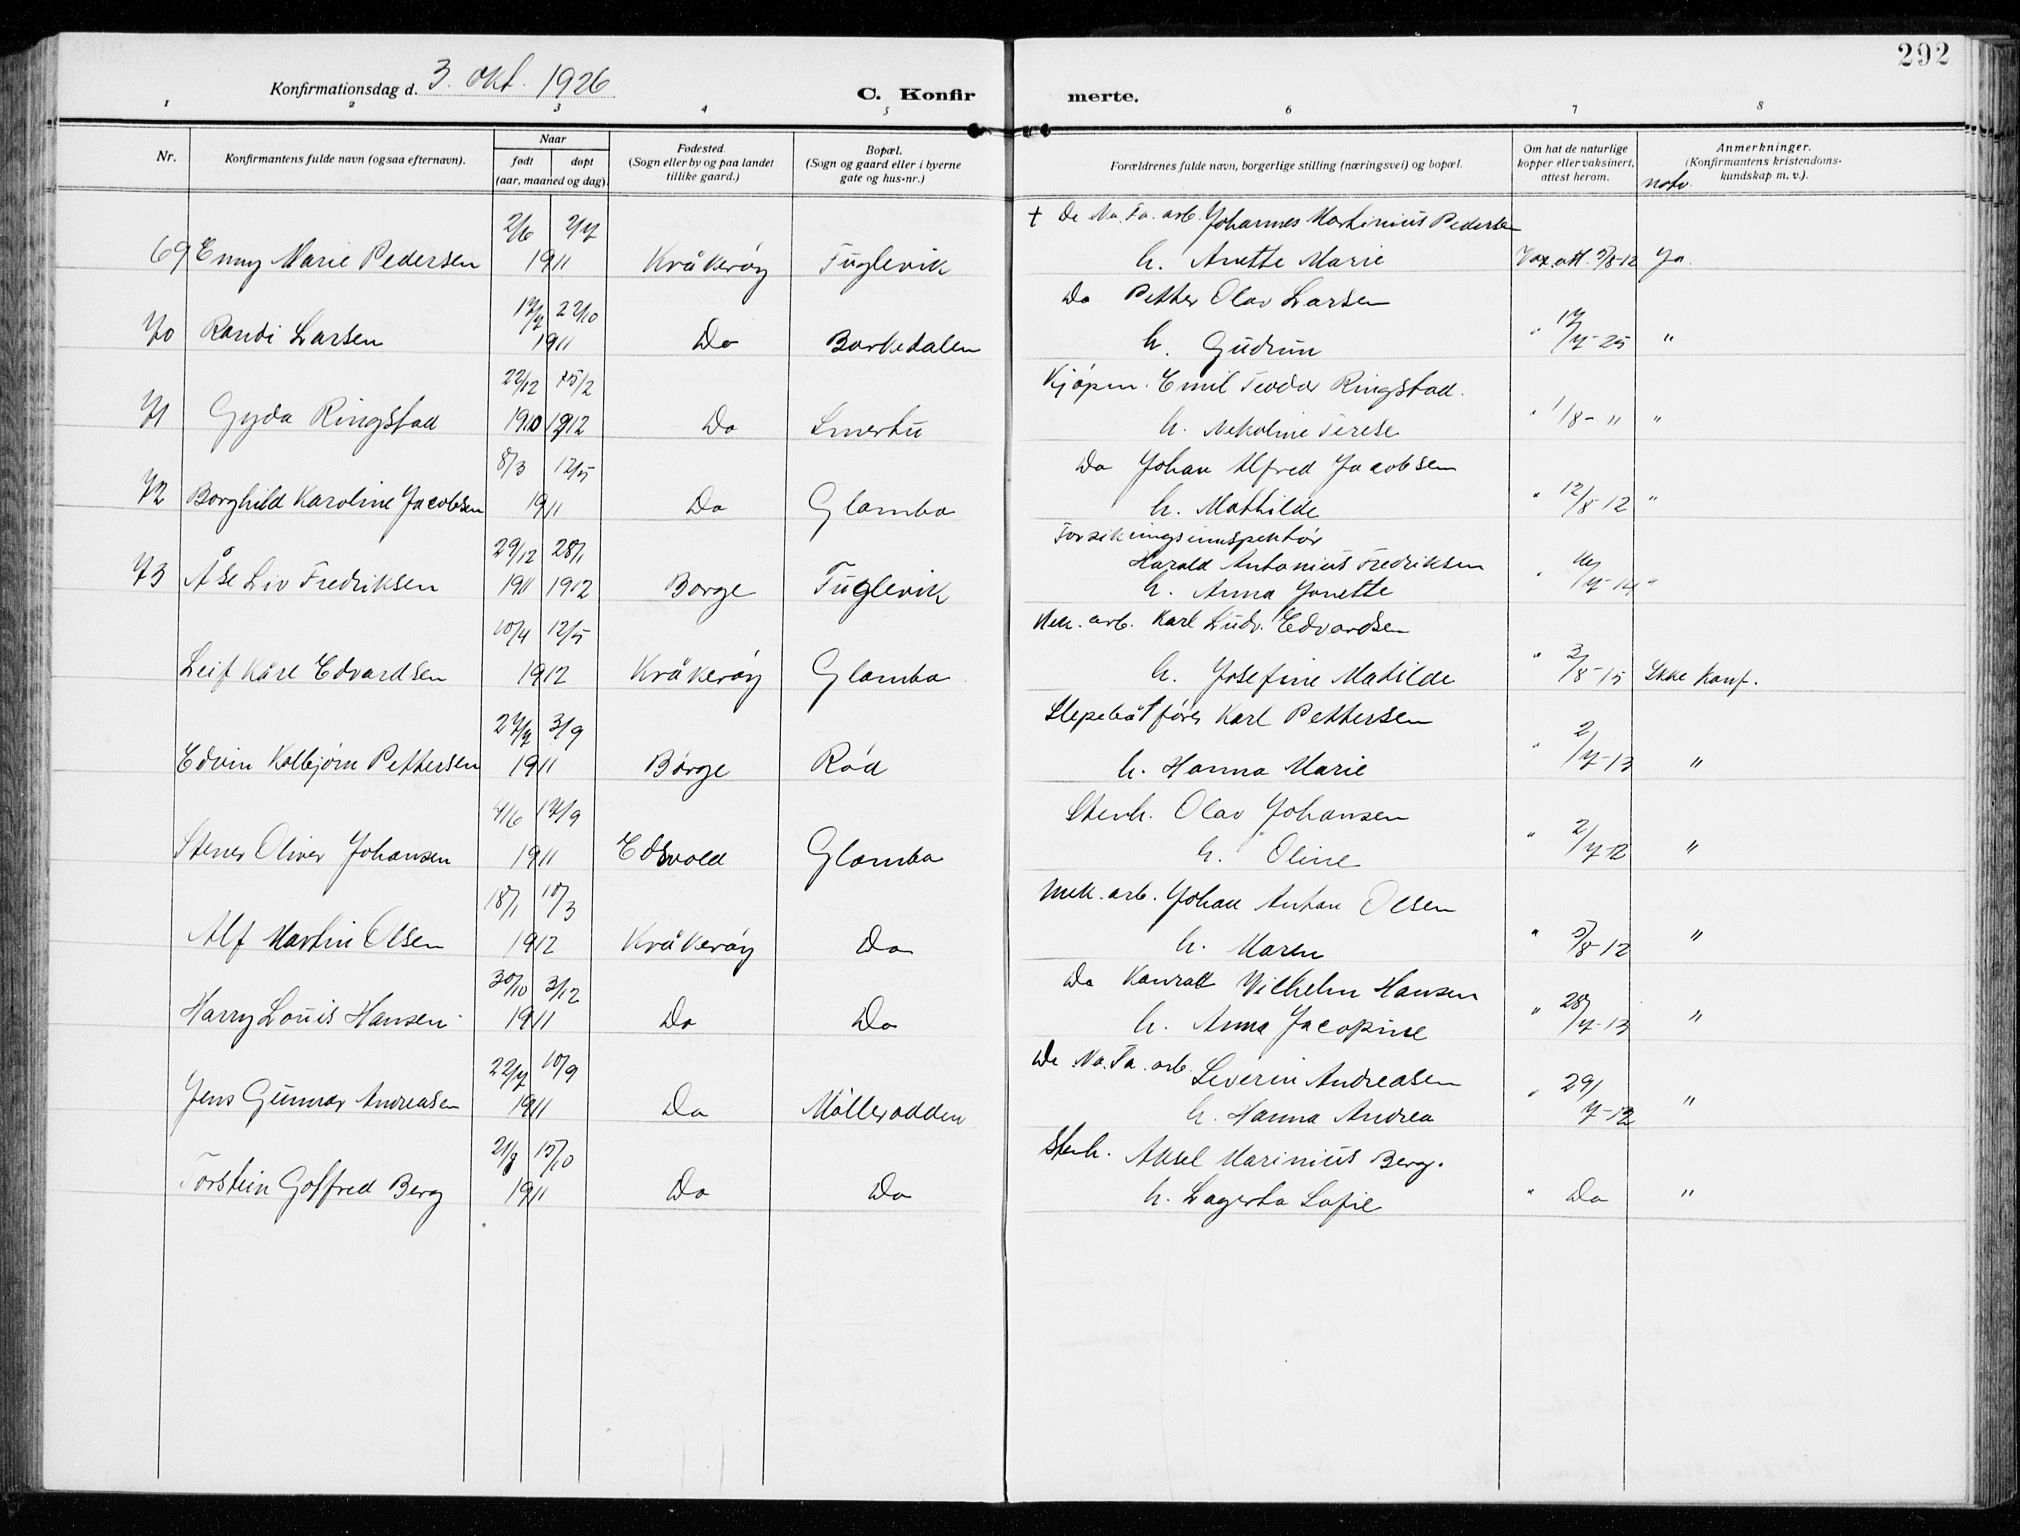 292
Konfirmationsdag d. 3. okt. 1926
C. Konfir merte.
1 2 3 4 5 6 7 8
Nr.
Konfirmantens fulde navn (ogsaa efternavn).
Naar
født døpt
(aar, maaned og dag).
Fødested.
(Sogn eller by og paa landet
tillike gaard.)
Bopæl.
(Sogn og gaard eller i byerne
gate og hus-nr.)
Forældrenes fulde navn, borgerlige stilling (næringsvei) og bopæl.
Om hat de naturlige
kopper eller vaksinert,
attest herom.
Anmerkninger.
(Konfirmantens kristendoms-
kundskap m. v.).
notv.
2/6 2/7 + De No. Fa. arb. Johannes Martinius Pedersen
69 Enny Marie Pedersen 1911 Kråkerøy Fuglevik h. Anette Marie Vax. att. 5/8-12 Ja.
17/7 22/10 Do Petter Olav Larsen
70 Randi Larsen 1911 Do Barkedalen h. Gudrun " 17/7-25 "
22/12 15/2 Kjöpm. Emil Teodor Ringstad.
71 Gyda Ringstad 1910 1912 Do Smertu h. Nekoline Terese " 1/8- " "
8/3 12/5 Do Johan Alfred Jacobsen
72 Borghild Karoline Jacobsen 1911 Do Glomba h. Mathilde " 12/8-12 "
29/12 28/1 Forsikringsinnspektør
Harald Antonius Fredriksen
73 Åse Liv Fredriksen 1911 1912 Borge Fuglevik h. Anna Jonette " /7-14 "
10/4 12/5 Mek. arb. Karl Ludv. Edvardsen
Leif Kåre Edvardsen 1912 Kråkerøy Glomba h. Josefine Matilde " 3/8-15 Ikke konf.
27/7 3/9 Slepebåtfører Karl Pettersen
Edvin Kolbjørn Pettersen 1911 Borge Rød h. Hanna Marie " 2/7-13 "
4/6 17/9 Stenh. Olav Johansen
Stener Oliver Johansen 1911 Edsvold Glomba h. Oline " 2/7-12 "
18/1 10/3 Mek. arb. Johan Anton Olsen
Alf Martin Olsen 1912 Kråkerøy Do h. Maren " 5/8-12 "
30/10 3/12 Do Konrad Vilhelm Hansen
Harry Louis Hansen 1911 Do Do h. Anna Jacopine " 28/7-13 "
22/7 10/9 De No. Fa. arb. Severin Andreasen
Jens Gunnar Andreasen 1911 Do Mölleradden h. Hanna Andrea " 29/7-12 "
21/8 15/10 Stenh. Aksel Marinius Berg.
Torstein Goffred Berg 1911 Do Do h. Lagerta Sofie " Do "